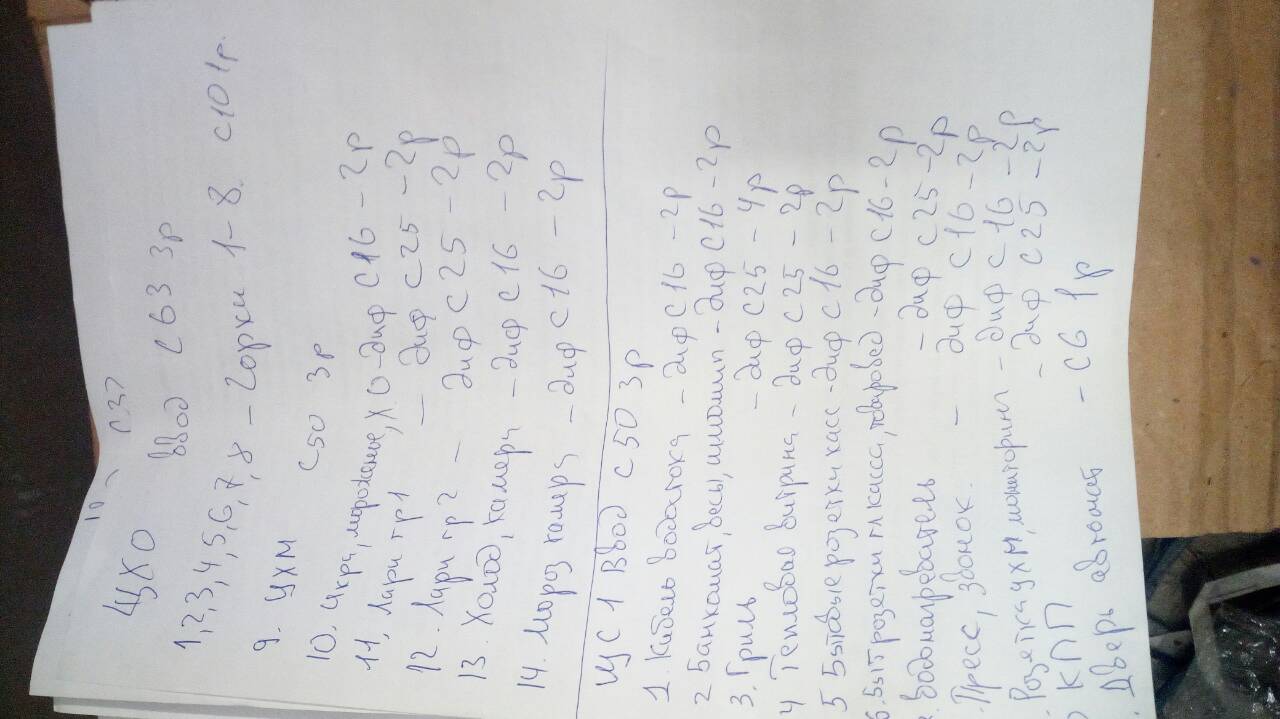 ЩХО ввод С63 3р
1,2,3,4,5,6,7,8 – Горки 1-8. С10 1р.
9. ЦХМ С50 3р
10. Икра, мороженое, ХО - диф С16 – 2р
11. Лари гр1 – диф С25 – 2р
12. Лари гр2 – диф С25 – 2р
13. Холод, камера – диф С16 – 2р
14. Мороз камера – диф С16 – 2р
ЩС 1 Ввод С50 3р
1 Кабель водостока – диф С16 – 2р
2 Банкомат, весы, - диф С16 - 2р
3. Гриль – диф С25 – 4р
4 Тепловая витрина – диф С25 – 2р
5 Бытовые розетки касс - диф С16 – 2р
6. Быт розетки гл касса, товаровед - диф С16 - 2р
Водонагреватель – диф С25 - 2р
Пресс, звонок. – диф С16 – 2р
Розетка ЦХМ, мониторинг – диф С16 – 2р
КПП – диф С25 – 2р
Дверь автомат – С6 1р